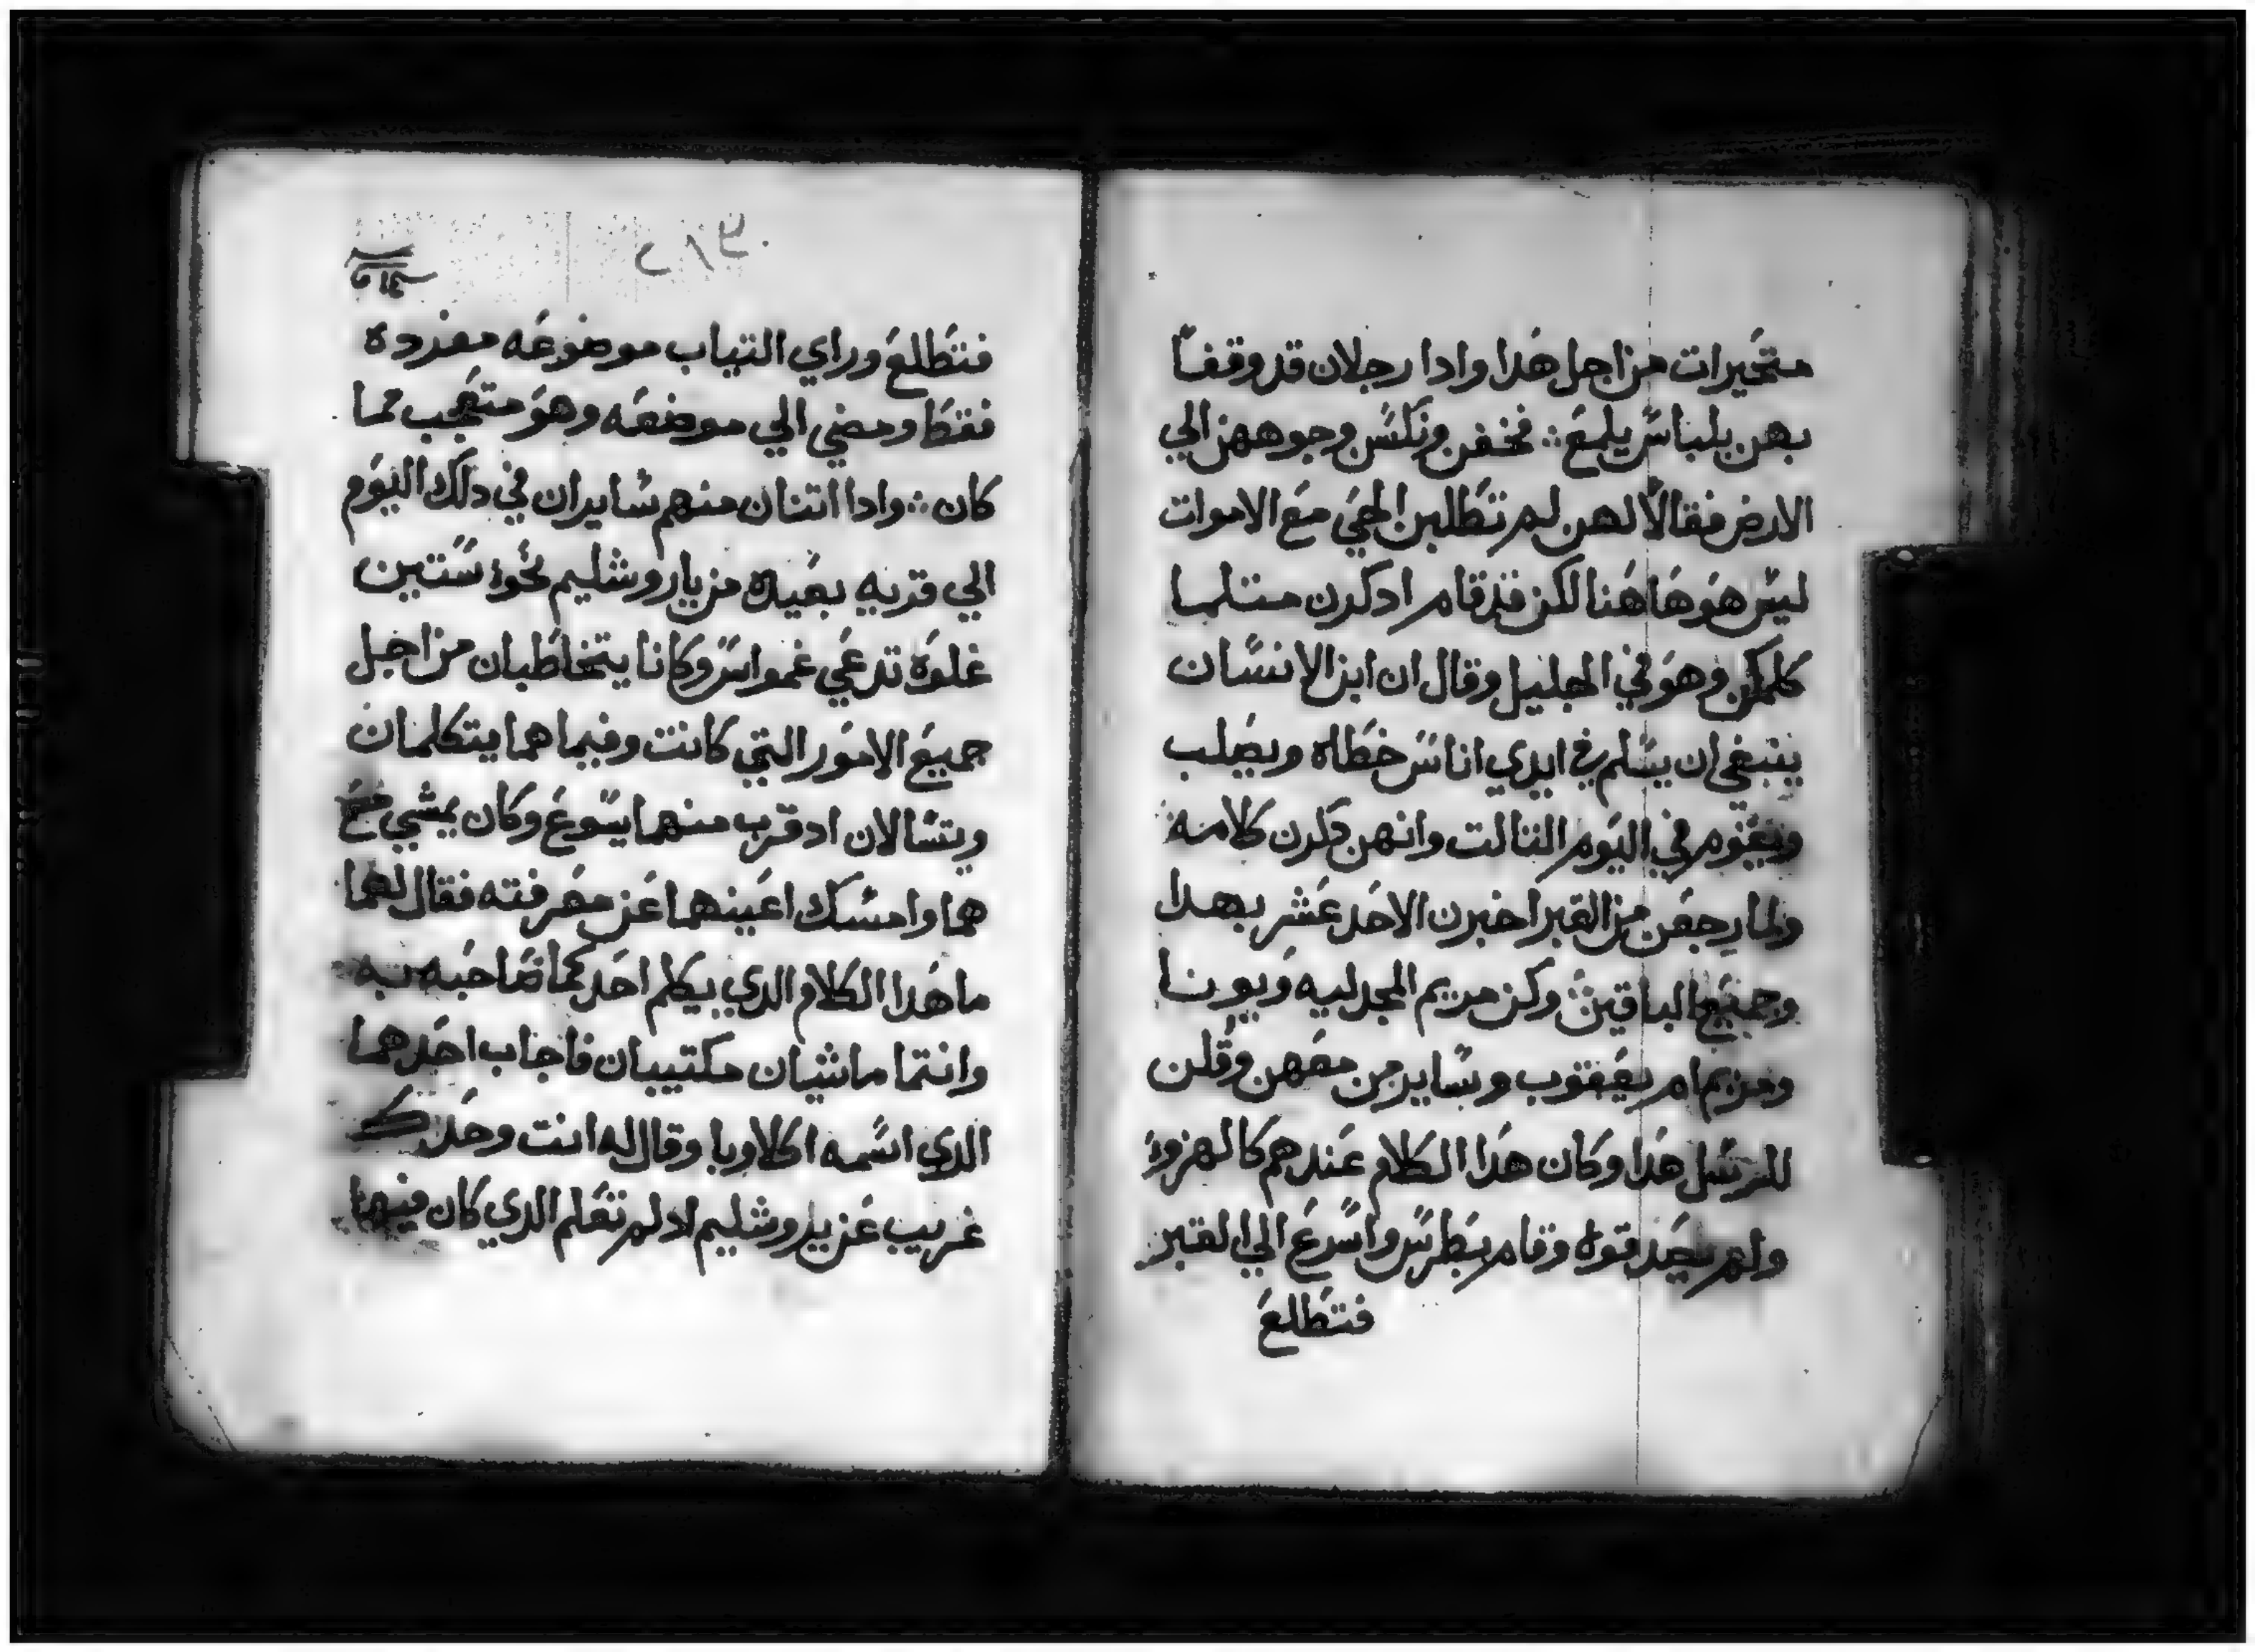 متحيرات من اجل هدا وادا رجلان قد وقفا
بهن بلباس يلمع ܀ فخفن ونكسن وجوههن الي
الارض فقالا لهن لم تطلبن الحي مع الاموات
ليس هو هاهنا لكن قد قام ادكرن متلما
كلمكن وهو في الجليل وقال ان ابن الانسان
ينبغي ان يسلم في ايدي اناس خطاه ويصلب
ويقوم في اليوم التالت وانهن دكرن كلامه
ولما رجعن من القبر اخبرن الاحد عشر بهدا
وجميع الباقين ܀ وكن مريم المجدليه ويونا
ومريم ام يعقوب وساير من معهن وقلن
للرسل هدا وكان هدا الكلام عندهم كالهزوء
ولم يصدقوه وقام بطرس واسرع الي القبر
فتطلع
فتطلع وراي التياب موضوعه مفرده
فقط ومضي الي موضعه وهو متعجب مما
كان ܀ وادا اتنان منهم سايران في دلك اليوم
الي قريه بعيده من ياروشليم نحو ستين
غلوه تدعي عمواس وكانا يتخاطبان من اجل
جميع الامور التي كانت وفيما هما يتكلمان
ويتسالان اد قرب منهما يسوع وكان يمشي مع
هما وامسك اعينهما عن معرفته فقال لهما
ما هدا الكلام الدي يكلم احدكما صاحبه به
وانتما ماشيان مكتيبان فاجاب احدهما
الدي اسمه اكلاوبا وقال له انت وحدك
غريب عن ياروشليم اد لم تعلم الدي كان فيها